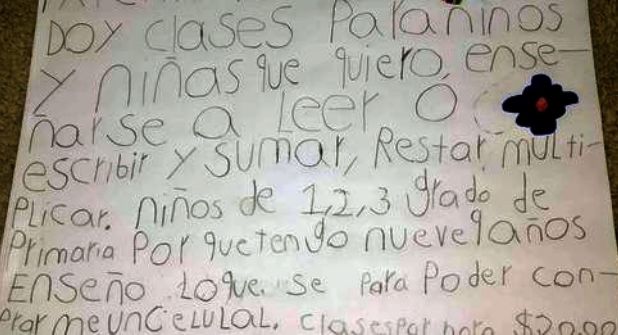 DOY clases Para ninos
y niñas que quiero, ense-
ñarse a Leer O
escribir y sumar, Restar multi-
plicar. niños de 1,2,3 grado de
Primaria Por que tengo nueve 9 años
ENSEño loque se Para Poder con-
prarme un celulal. clases por hora $20.00